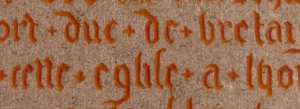 ort + duc + de + bretai
+ ceste + eglise + a + lho